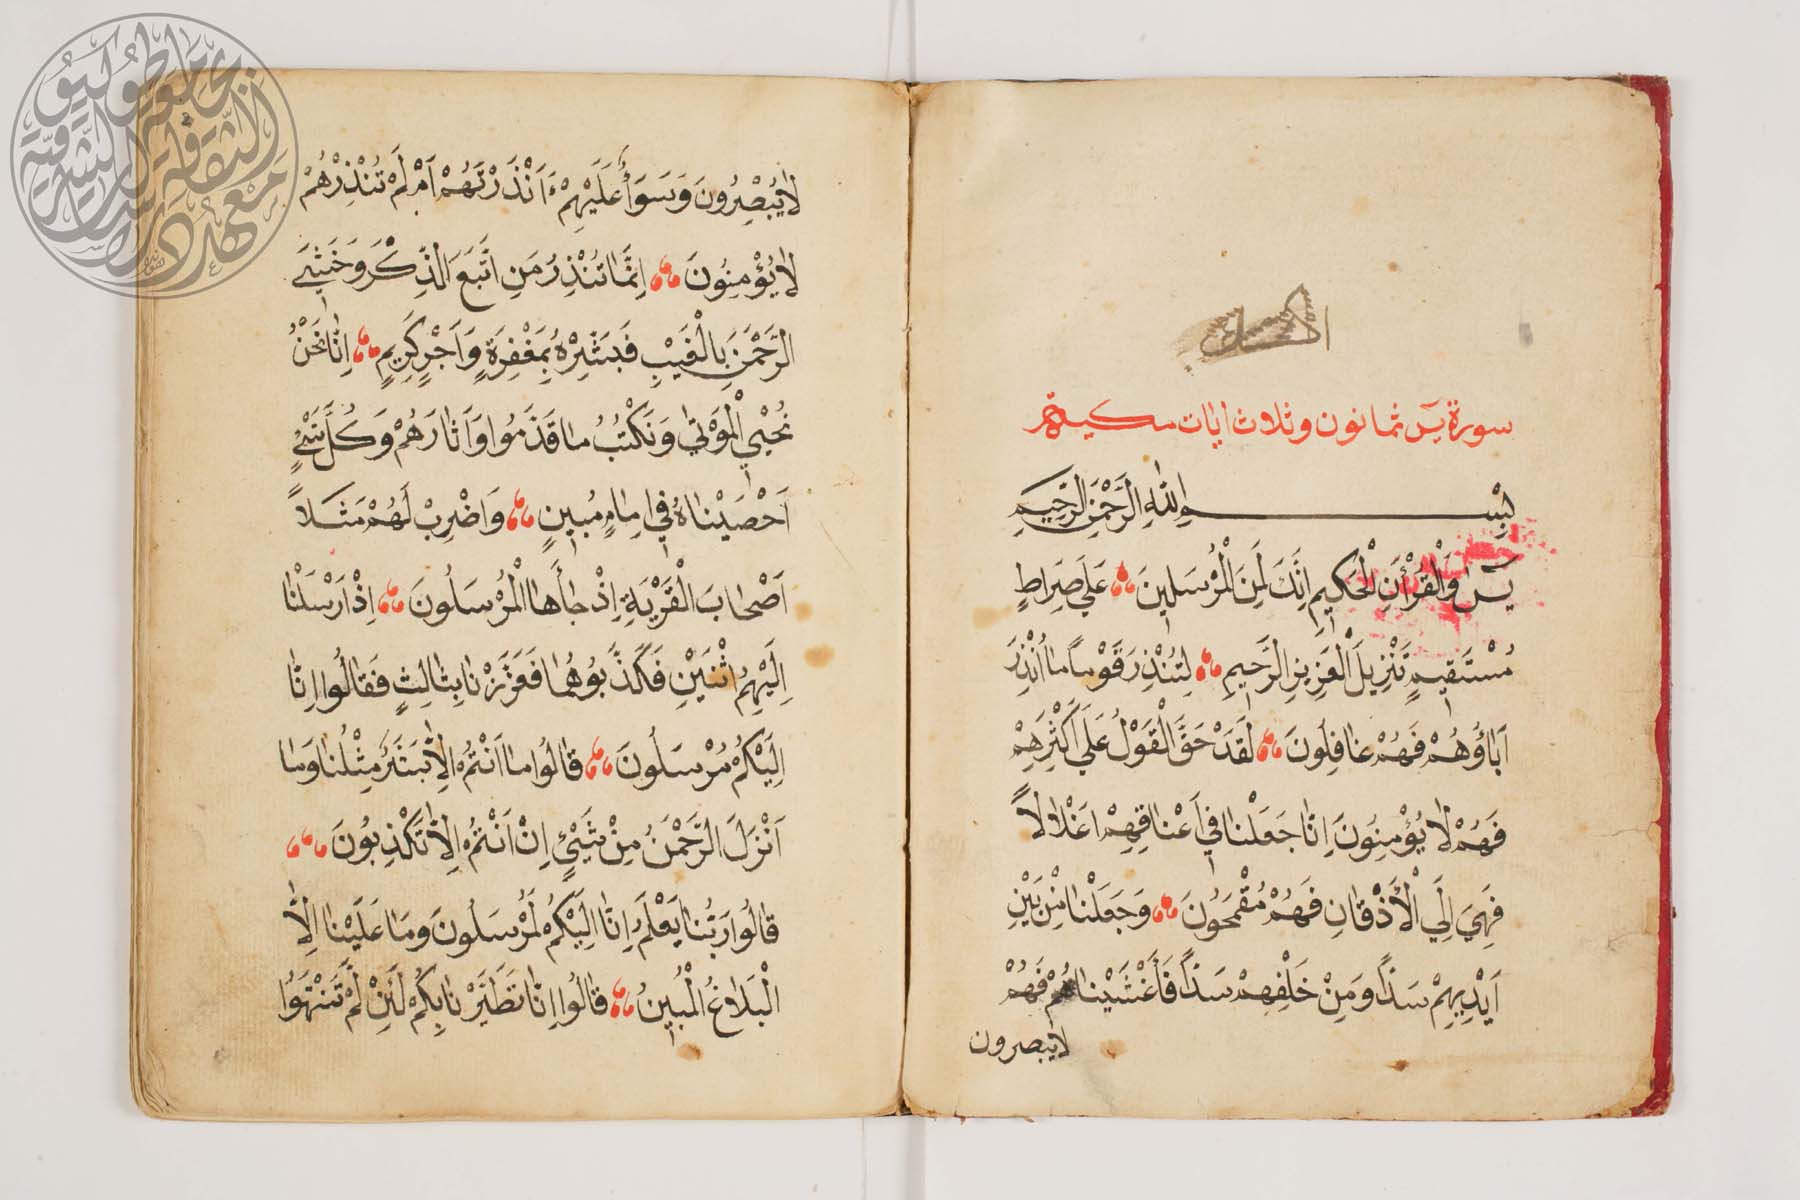 سورة يس ثمانون وثلاث ايات مكية
بِسْمِ اللهِ الرَّحْمٰنِ الرَّحِيمِ
يٰسٓ وَالْقُرْأٰنِ الْحَكِيمِ اِنَّكَ لَمِنَ الْمُرْسَلِينَ عَلَى صِرَاطٍ
مُسْتَقِيمٍ تَنْزِيلَ الْعَزِيزِ الرَّحِيمِ لِتُنْذِرَ قَوْمًا مَا اُنْذِرَ
اٰبَاؤُهُمْ فَهُمْ غَافِلُونَ لَقَدْ حَقَّ الْقَوْلُ عَلَى اَكْثَرِهِمْ
فَهُمْ لَا يُؤْمِنُونَ اِنَّا جَعَلْنَا فِي اَعْنَاقِهِمْ اَغْلَالًا
فَهِيَ اِلَى الْاَذْقَانِ فَهُمْ مُقْمَحُونَ وَجَعَلْنَا مِنْ بَيْنِ
اَيْدِيهِمْ سَدًّا وَمِنْ خَلْفِهِمْ سَدًّا فَأَغْشَيْنَاهُمْ فَهُمْ
لايبصرون
لَا يُبْصِرُونَ وَسَوَاۤءٌ عَلَيْهِمْ ءَاَنْذَرْتَهُمْ اَمْ لَمْ تُنْذِرْهُمْ
لَا يُؤْمِنُونَ اِنَّمَا تُنْذِرُ مَنِ اتَّبَعَ الذِّكْرَ وَخَشِيَ
الرَّحْمٰنَ بِالْغَيْبِ فَبَشِّرْهُ بِمَغْفِرَةٍ وَاَجْرٍ كَرِيمٍ اِنَّا نَحْنُ
نُحْيِي الْمَوْتَى وَنَكْتُبُ مَا قَدَّمُوا وَاٰثَارَهُمْ وَكُلَّ شَيْءٍ
اَحْصَيْنَاهُ فِي اِمَامٍ مُبِينٍ وَاضْرِبْ لَهُمْ مَثَلًا
اَصْحَابَ الْقَرْيَةِ اِذْ جَاۤءَهَا الْمُرْسَلُونَ اِذْ اَرْسَلْنَا
اِلَيْهِمُ اثْنَيْنِ فَكَذَّبُوهُمَا فَعَزَّزْنَا بِثَالِثٍ فَقَالُوا اِنَّا
اِلَيْكُمْ مُرْسَلُونَ قَالُوا مَا اَنْتُمْ اِلَّا بَشَرٌ مِثْلُنَا وَمَا
اَنْزَلَ الرَّحْمٰنُ مِنْ شَيْءٍ اِنْ اَنْتُمْ اِلَّا تَكْذِبُونَ
قَالُوا رَبُّنَا يَعْلَمُ اِنَّا اِلَيْكُمْ لَمُرْسَلُونَ وَمَا عَلَيْنَا اِلَّا
الْبَلَاغُ الْمُبِينُ قَالُوا اِنَّا تَطَيَّرْنَا بِكُمْ لَئِنْ لَمْ تَنْتَهُوا